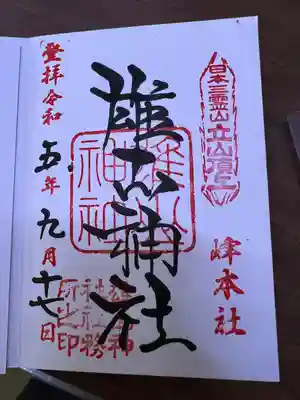 日本三霊山立山頂上
峰本社
雄山神社
雄山
神社
登拝令和五年九月十七日
雄山神
社社務
所之印